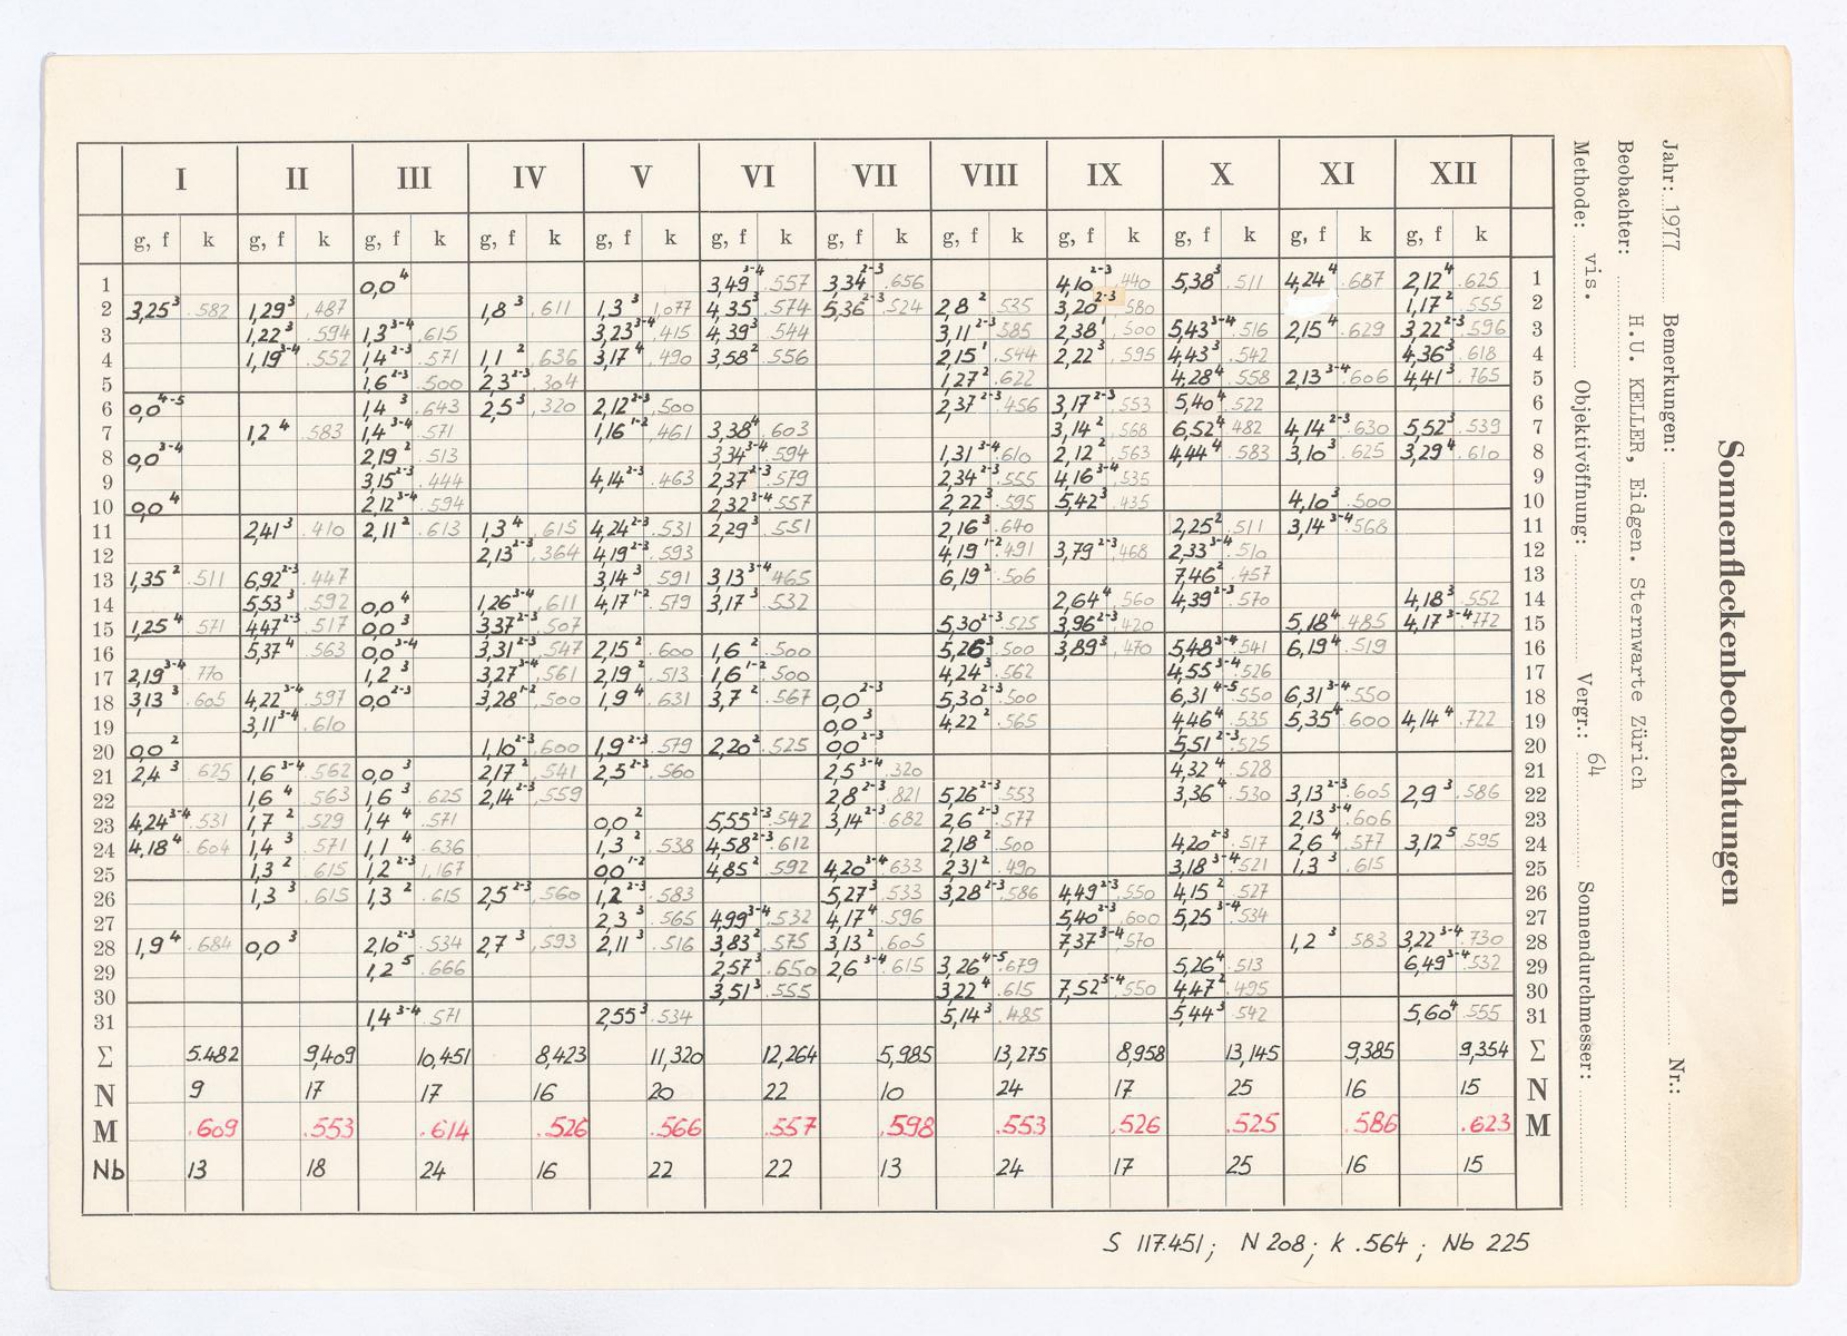 I II III IV V VI VII VIII IX X XI XII
g, f k g, f k g, f k g, f k g, f k g, f k g, f k g, f k g, f k g, f k g, f k g, f k
1 0,0⁴ 3,49³⁻⁴ .557 3,34²⁻³ .656 4,10²⁻³ .440 5,38³ .511 4,24⁴ .687 2,12⁴ .625 1
2 3,25³ .582 1,29³ .487 1,8³ .611 1,3³ 1,077 4,35³ .574 5,36²⁻³ .524 2,8² .535 3,20²⁻³ .580 1,17² .555 2
3 1,22³ .594 1,3³⁻⁴ .615 3,23³⁻⁴ .415 4,39³ .544 3,11²⁻³ .585 2,38¹ .500 5,43³⁻⁴ .516 2,15⁴ .629 3,22²⁻³ .596 3
4 1,19³⁻⁴ .552 1,4²⁻³ .571 1,1² .636 3,17⁴ .490 3,58² .556 2,15¹ .544 2,22³ .595 4,43³ .542 4,36³ .618 4
5 1,6²⁻³ .500 2,3²⁻³ .304 1,27² .622 4,28⁴ .558 2,13³⁻⁴ .606 4,41³ .765 5
6 0,0⁴⁻⁵ 1,4³ .643 2,5³ .320 2,12²⁻³ .500 2,37²⁻³ .456 3,17²⁻³ .553 5,40⁴ .522 6
7 1,2⁴ .583 1,4³⁻⁴ .571 1,16¹⁻² .461 3,38⁴ .603 3,14² .568 6,52⁴ .482 4,14²⁻³ .630 5,52³ .539 7
8 0,0³⁻⁴ 2,19² .513 3,34³⁻⁴ .594 1,31³⁻⁴ .610 2,12² .563 4,44⁴ .583 3,10³ .625 3,29⁴ .610 8
9 3,15²⁻³ .444 4,14²⁻³ .463 2,37²⁻³ .579 2,34²⁻³ .555 4,16³⁻⁴ .535 9
10 0,0⁴ 2,12³⁻⁴ .594 2,32³⁻⁴ .557 2,22³ .595 5,42³ .435 4,10³ .500 10
11 2,41³ .410 2,11² .613 1,3⁴ .615 4,24²⁻³ .531 2,29³ .551 2,16³ .640 2,25² .511 3,14³⁻⁴ .568 11
12 2,13²⁻³ .364 4,19²⁻³ .593 4,19¹⁻² .491 3,79²⁻³ .468 2,33³⁻⁴ .510 12
13 1,35² .511 6,92²⁻³ .447 3,14³ .591 3,13³⁻⁴ .465 6,19² .506 7,46² .457 13
14 5,53³ .592 0,0⁴ 1,26³⁻⁴ .611 4,17¹⁻² .579 3,17³ .532 2,64⁴ .560 4,39²⁻³ .570 4,18³ .552 14
15 1,25⁴ .571 4,47²⁻³ .517 0,0³ 3,37²⁻³ .507 5,30²⁻³ .525 3,96²⁻³ .420 5,18⁴ .485 4,17³⁻⁴ .772 15
16 5,37⁴ .563 0,0³⁻⁴ 3,31²⁻³ .547 2,15² .600 1,6² .500 5,26³ .500 3,89³ .470 5,48³⁻⁴ .541 6,19⁴ .519 16
17 2,19³⁻⁴ .770 1,2³ 3,27³⁻⁴ .561 2,19² .513 1,6¹⁻² .500 4,24³ .562 4,55³⁻⁴ .526 17
18 3,13³ .605 4,22³⁻⁴ .597 0,0²⁻³ 3,28¹⁻² .500 1,9⁴ .631 3,7² .567 0,0²⁻³ 5,30²⁻³ .500 6,31⁴⁻⁵ .550 6,31³⁻⁴ .550 18
19 3,11³⁻⁴ .610 0,0³ 4,22² .565 4,46⁴ .535 5,35⁴ .600 4,14⁴ .722 19
20 0,0² 1,10²⁻³ .600 1,9²⁻³ .579 2,20² .525 0,0²⁻³ 5,51²⁻³ .525 20
21 2,4³ .625 1,6³⁻⁴ .562 0,0³ 2,17² .541 2,5²⁻³ .560 2,5³⁻⁴ .320 4,32⁴ .528 21
22 1,6⁴ .563 1,6³ .625 2,14²⁻³ .559 2,8²⁻³ .821 5,26²⁻³ .553 3,36⁴ .530 3,13²⁻³ .605 2,9³ .586 22
23 4,24³⁻⁴ .531 1,7² .529 1,4⁴ .571 0,0² 5,55²⁻³ .542 3,14²⁻³ .682 2,6²⁻³ .577 2,13³⁻⁴ .606 23
24 4,18⁴ .604 1,4³ .571 1,1⁴ .636 1,3² .538 4,58²⁻³ .612 2,18² .500 4,20²⁻³ .517 2,6⁴ .577 3,12⁵ .595 24
25 1,3² .615 1,2²⁻³ 1,167 0,0¹⁻² 4,85² .592 4,20³⁻⁴ .633 2,31² .490 3,18³⁻⁴ .521 1,3³ .615 25
26 1,3³ .615 1,3² .615 2,5²⁻³ .560 1,2²⁻³ .583 5,27³ .533 3,28²⁻³ .586 4,49²⁻³ .550 4,15² .527 26
27 2,3³ .565 4,99³⁻⁴ .532 4,17⁴ .596 5,40²⁻³ .600 5,25³⁻⁴ .534 27
28 1,9⁴ .684 0,0³ 2,10²⁻³ .534 2,7³ .593 2,11³ .516 3,83² .575 3,13² .605 7,37³⁻⁴ .570 1,2³ .583 3,22³⁻⁴ .730 28
29 1,2⁵ .666 2,57³ .650 2,6³⁻⁴ .615 3,26⁴⁻⁵ .679 5,26⁴ .513 6,49³⁻⁴ .532 29
30 3,51³ .555 3,22⁴ .615 7,52³⁻⁴ .550 4,47² .495 30
31 1,4³⁻⁴ .571 2,55³ .534 5,14³ .485 5,44³ .542 5,60⁴ .555 31
Σ 5.482 9,409 10,451 8,423 11,320 12,264 5,985 13,275 8,958 13,145 9,385 9,354 Σ
N 9 17 17 16 20 22 10 24 17 25 16 15 N
M .609 .553 .614 .526 .566 .557 .598 .553 .526 .525 .586 .623 M
Nb 13 18 24 16 22 22 13 24 17 25 16 15
S 117.451; N 208; k .564; Nb 225
Sonnenfleckenbeobachtungen
Jahr: 1977 Bemerkungen: Nr.:
Beobachter: H.U. KELLER, Eidgen. Sternwarte Zürich
Methode: vis. Objektivöffnung: Vergr.: 64 Sonnendurchmesser: